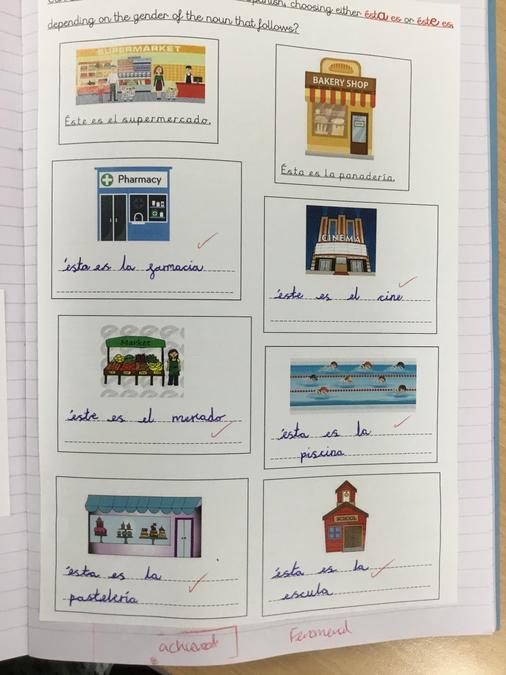 Spanish, choosing either ésta es or éste es,
depending on the gender of the noun that follows?
SUPERMARKET
Éste es el supermercado.
BAKERY SHOP
Ésta es la panadería.
Pharmacy
ésta es la farmacia
CINEMA
éste es el cine
Market
éste es el mercado
ésta es la
piscina
ésta es la
pastelería
SCHOOL
ésta es la
escula
achieved